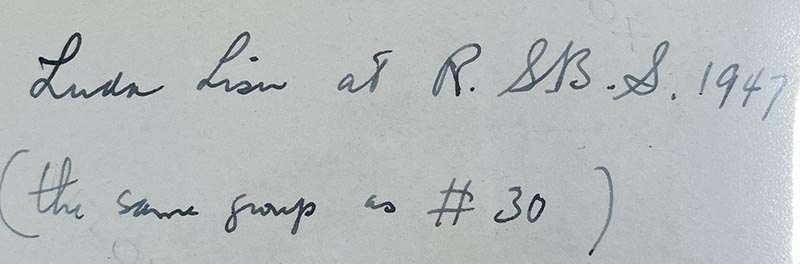 Luda Lisu at R. S.B.S. 1947
(the same group as # 30)